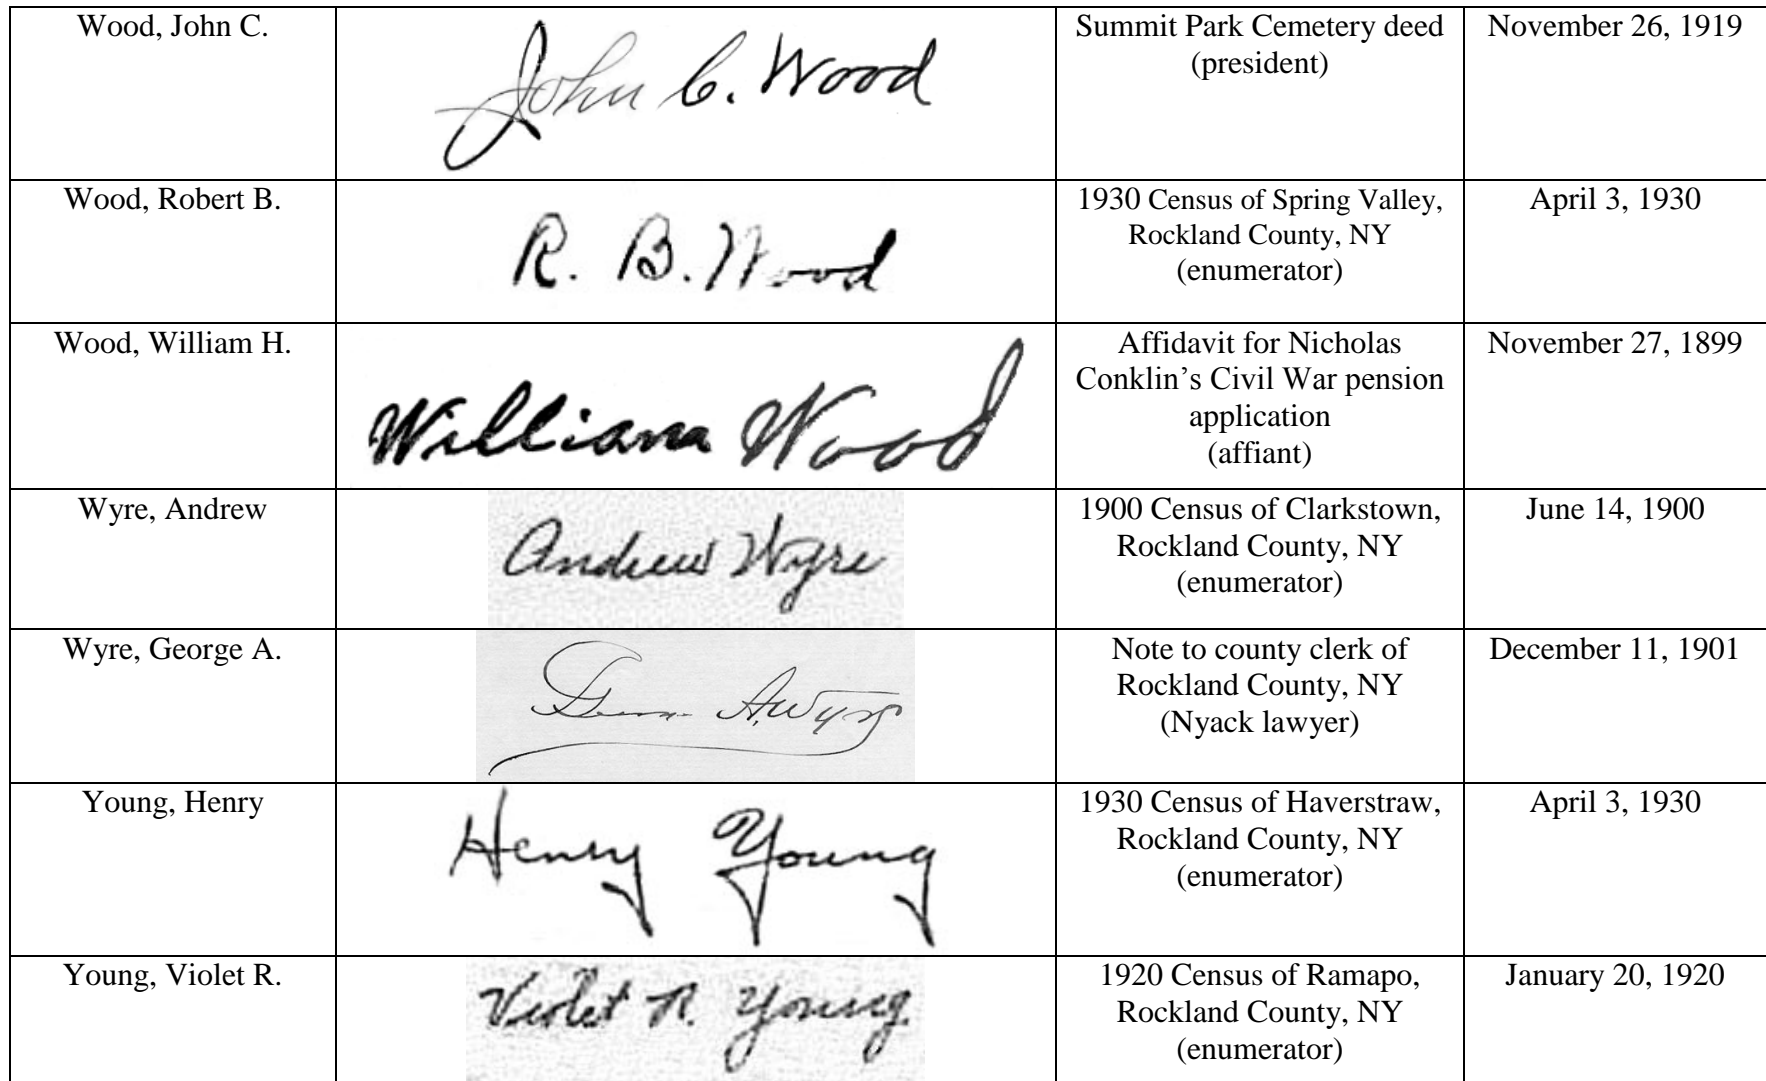 Wood, John C.
John C. Wood
Summit Park Cemetery deed
(president)
November 26, 1919
Wood, Robert B.
R. B. Wood
1930 Census of Spring Valley,
Rockland County, NY
(enumerator)
April 3, 1930
Wood, William H.
William Wood
Affidavit for Nicholas
Conklin’s Civil War pension
application
(affiant)
November 27, 1899
Wyre, Andrew
Andrew Wyre
1900 Census of Clarkstown,
Rockland County, NY
(enumerator)
June 14, 1900
Wyre, George A.
George A. Wyre
Note to county clerk of
Rockland County, NY
(Nyack lawyer)
December 11, 1901
Young, Henry
Henry Young
1930 Census of Haverstraw,
Rockland County, NY
(enumerator)
April 3, 1930
Young, Violet R.
Violet R. Young
1920 Census of Ramapo,
Rockland County, NY
(enumerator)
January 20, 1920